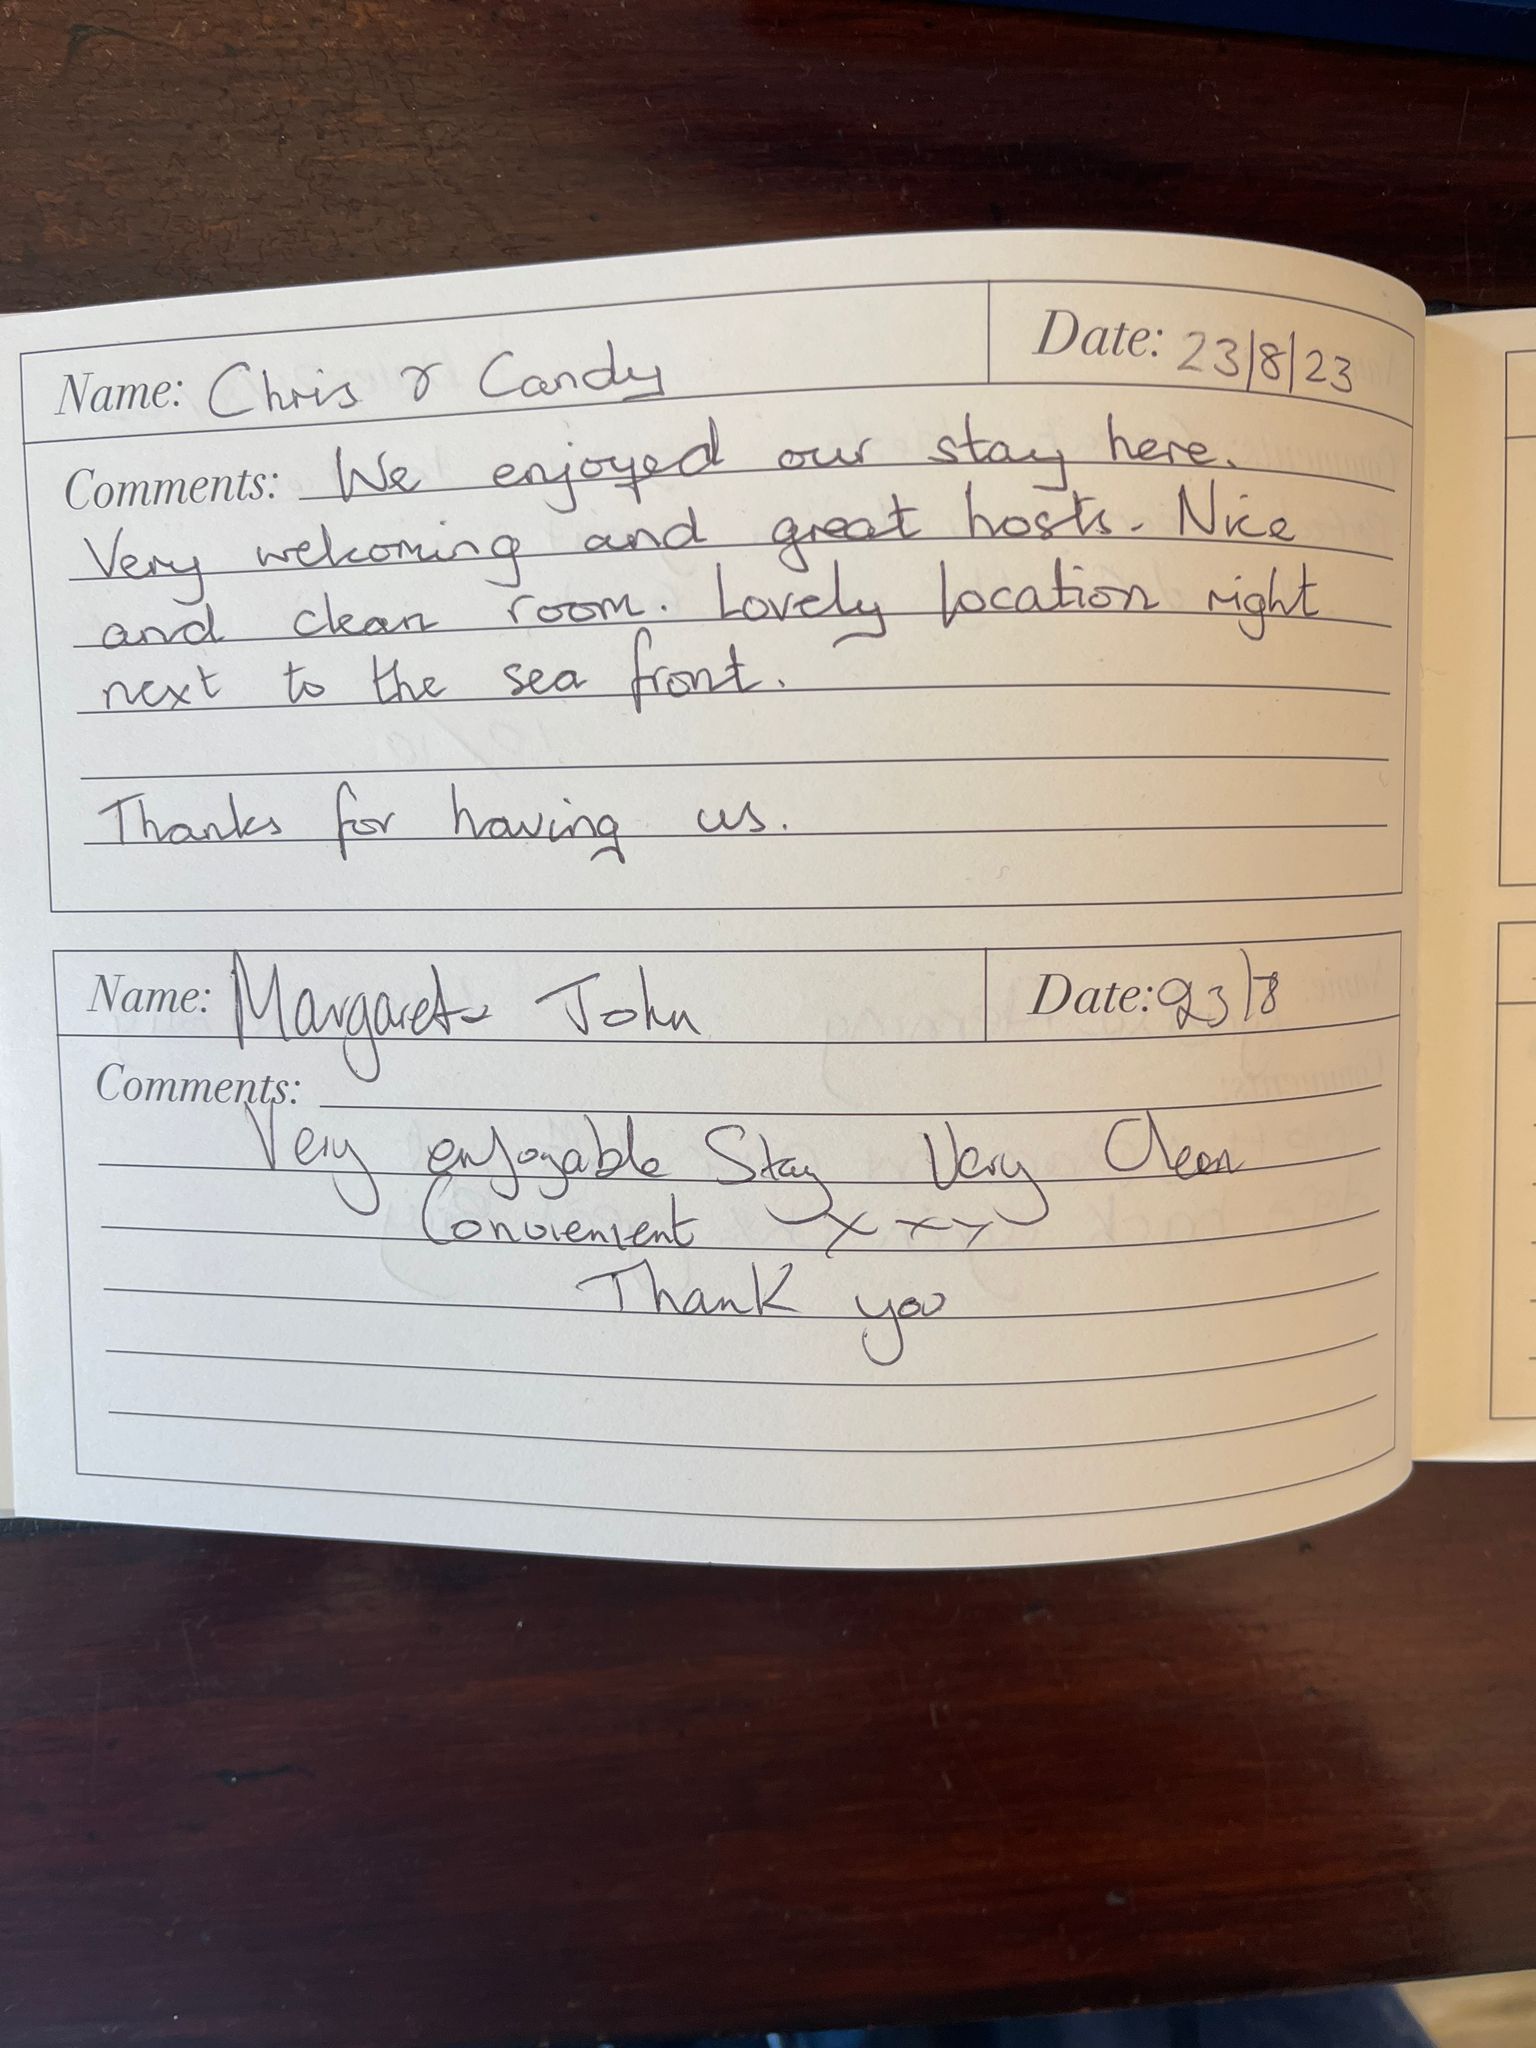 Name: Chris & Candy Date: 23/8/23
Comments: We enjoyed our stay here.
Very welcoming and great hosts. Nice
and clean room. Lovely location right
next to the sea front.
Thanks for having us.
Name: Margaret & John Date: 23/8
Comments:
Very enjoyable Stay Very Clean
Convienient x x x
Thank you